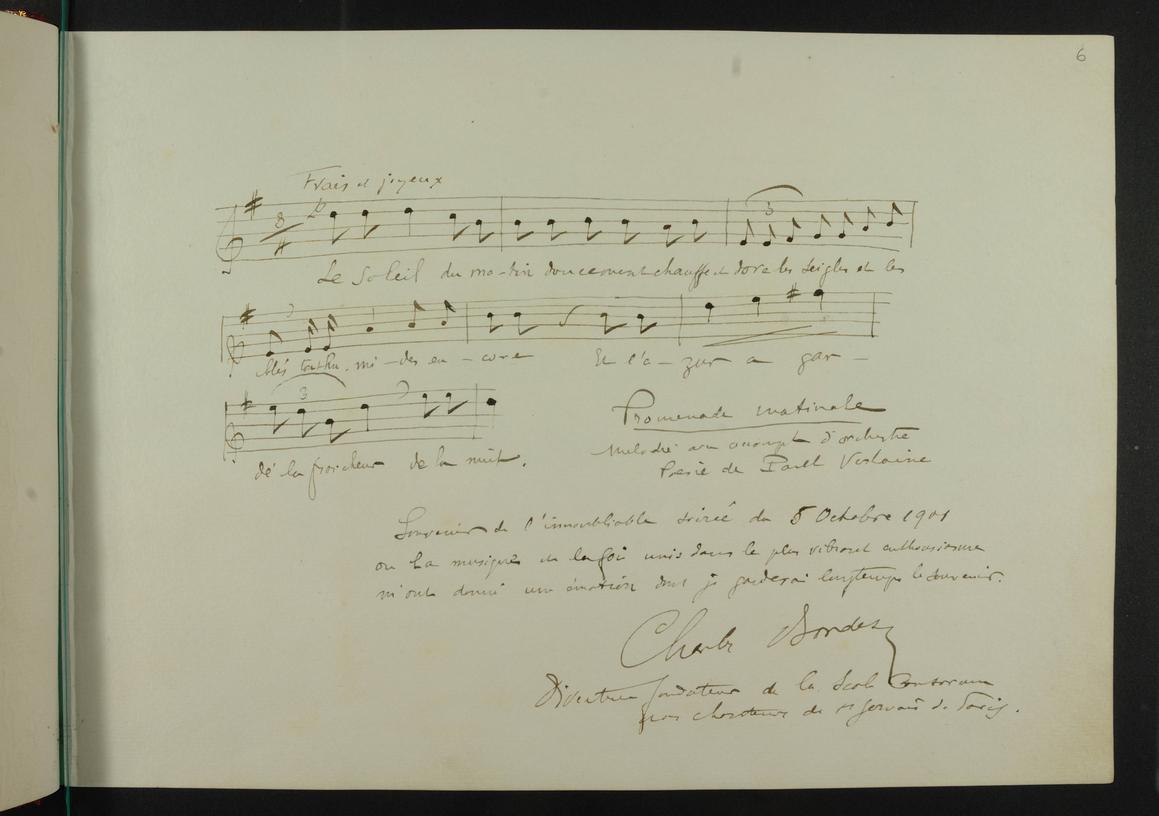 6
Frais et joyeux
Le Soleil du ma-tin doucement chauffe et dore les seigles et les
blés tout hu-mi-des en-core Et l'a-zur a gar-
dé la fraicheur de la nuit.
Promenade matinale
Melodie avec accompt d'orchestre
Poesie de Paul Verlaine
Souvenir de l'inoubliable soirée du 5 Octobre 1901
ou la musique et la foi unis dans le plus vibrant enthousiasme
m'ont donné une émotion dont je garderai longtemps le souvenir.
Charles Bordes
Directeur fondateur de la Scola Cantorum
des chanteurs de St Gervais de Paris.